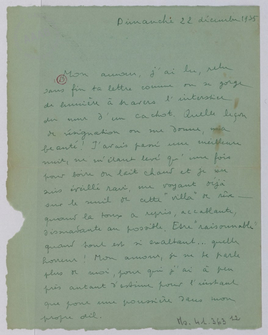 Dimanche 22 décembre 1935
Mon amour, j'ai lu, relu
sans fin ta lettre comme on se gorge
de lumière à travers l'interstice
des murs d'un cachot. Quelle leçon
de résignation on me donne,
beauté! J'avais passé une meilleure
nuit, ne m'étant levé qu'une fois
pour boire un lait chaud et je
suis
dans le midi de cette "villa" de
quand la toux a repris, accablante,
au possible. Etre raisonnable
quand tout est si exaltant... quelle
horreur! Mon amour, je ne parle
plus de moi, parce que j'ai à peu
près autant d'estime pour l'instant
que pour une poussière dans mon
propre œil.
Ms. 48.363